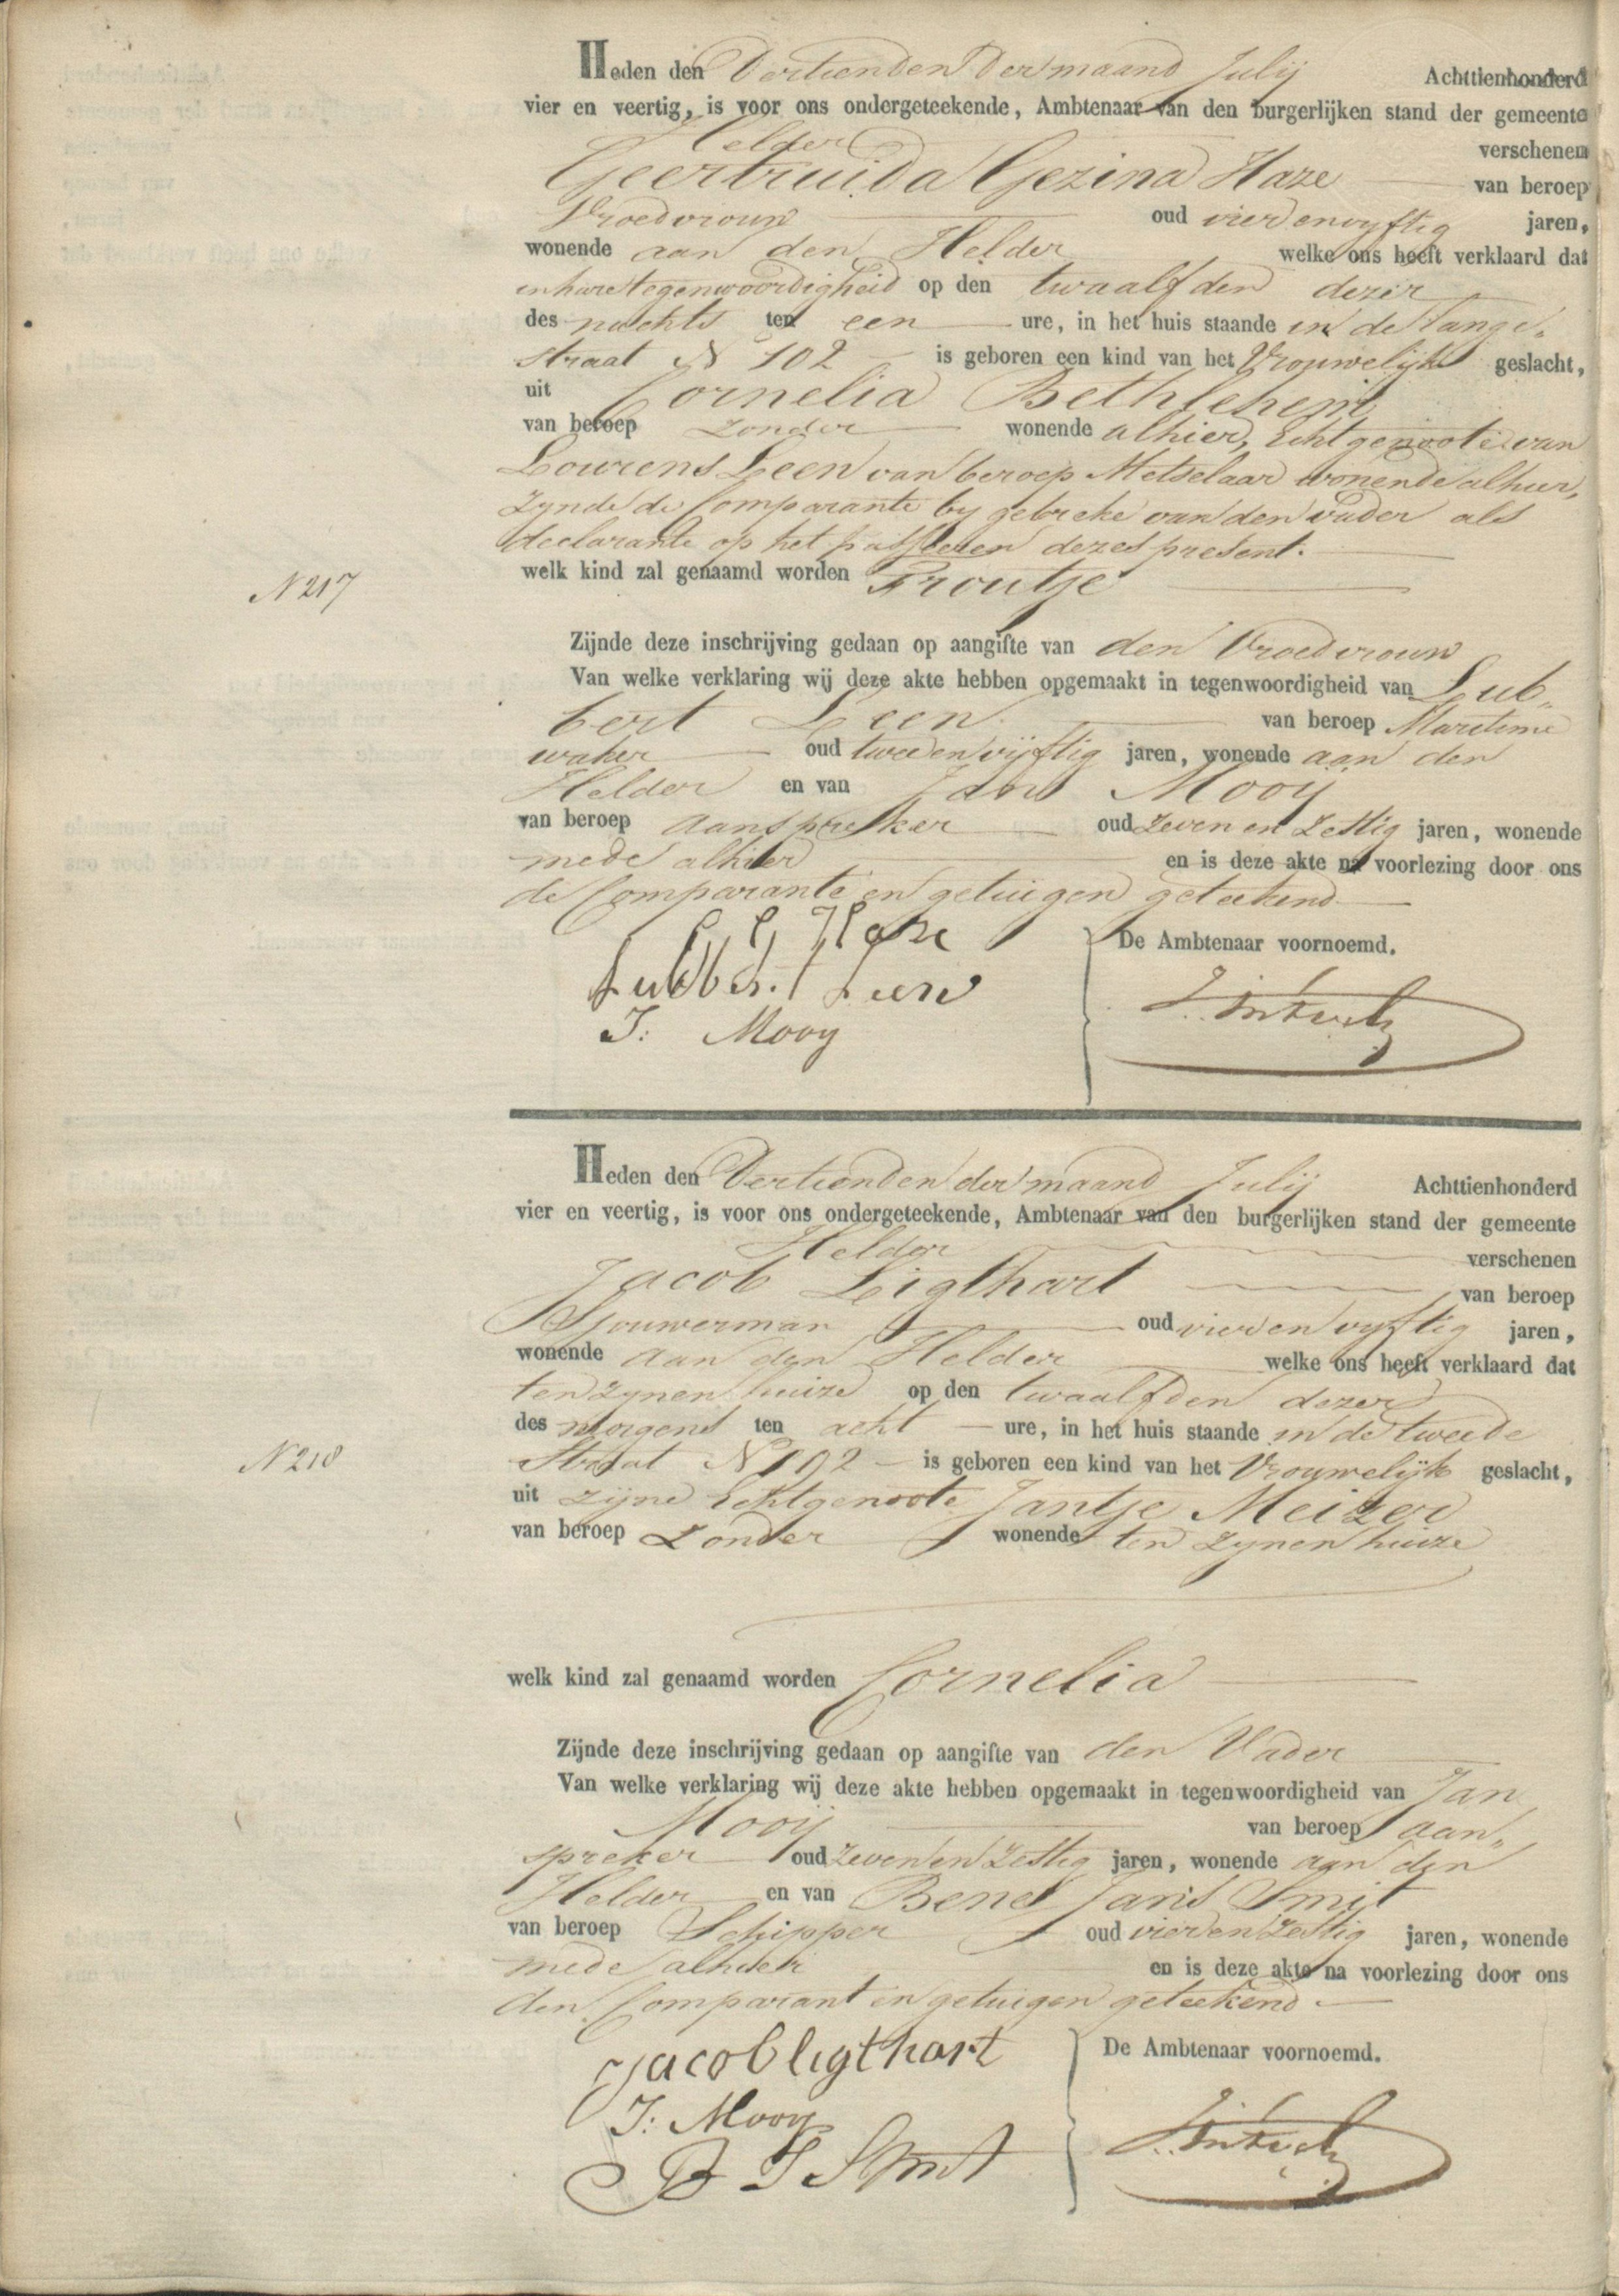 Heden den Dertienden der maand Julij Achttienhonderd
vier en veertig, is voor ons ondergeteekende, Ambtenaar van den burgerlijken stand der gemeente
Helder verschenen
Geertruida Gezina Haze van beroep
Vroedvrouw oud vierdenvyftig jaren,
wonende aan den Helder welke ons heeft verklaard dat
in hare tegenwoordigheid op den twaalfden dezer
des nachts ten een ure, in het huis staande in de Lange„
straat N 102 is geboren een kind van het Vrouwelijk geslacht,
uit Cornelia Bethlehem
van beroep zonder wonende alhier, Echtgenoote van
Lourens Leen van beroep Metselaar wonende alhier,
zynde de Comparante by gebreke van den vader als
declarante op het passeren dezes present.
N 217
welk kind zal genaamd worden Troutje
Zijnde deze inschrijving gedaan op aangifte van den Vroedvrouw
Van welke verklaring wij deze akte hebben opgemaakt in tegenwoordigheid van Lub„
bert Leen van beroep Maritime
waker oud tweedenvijftig jaren, wonende aan den
Helder en van Jan Mooij
van beroep Aanspreker oud zeven en zestig jaren, wonende
mede alhier en is deze akte na voorlezing door ons
de Comparante en getuigen geteekend
G G Haze
De Ambtenaar voornoemd.
Lubbert Leen
J: Mooy
Heden den Dertienden der maand Julij Achttienhonderd
vier en veertig, is voor ons ondergeteekende, Ambtenaar van den burgerlijken stand der gemeente
Helder verschenen
Jacob Ligthart van beroep
Sjouwerman oud vierden vyftig jaren,
wonende aan den Helder welke ons heeft verklaard dat
ten zynen huize op den twaalfden dezer
des morgens ten acht ure, in het huis staande in de tweede
N 218
Straat N 192 is geboren een kind van het Vrouwelijk geslacht,
uit zijne Echtgenoote Jantje Meizer
van beroep Zonder wonende ten zynen huize
welk kind zal genaamd worden Cornelia
Zijnde deze inschrijving gedaan op aangifte van den Vader
Van welke verklaring wij deze akte hebben opgemaakt in tegenwoordigheid van Jan
Mooij van beroep aan„
spreker oud zeven en zestig jaren, wonende aan den
Helder en van Bene Jans Smit
van beroep Schipper oud vierden zestig jaren, wonende
mede alhier en is deze akte na voorlezing door ons
den Comparant en getuigen geteekend
Jacob ligthart
De Ambtenaar voornoemd.
J: Mooy
B J Smit